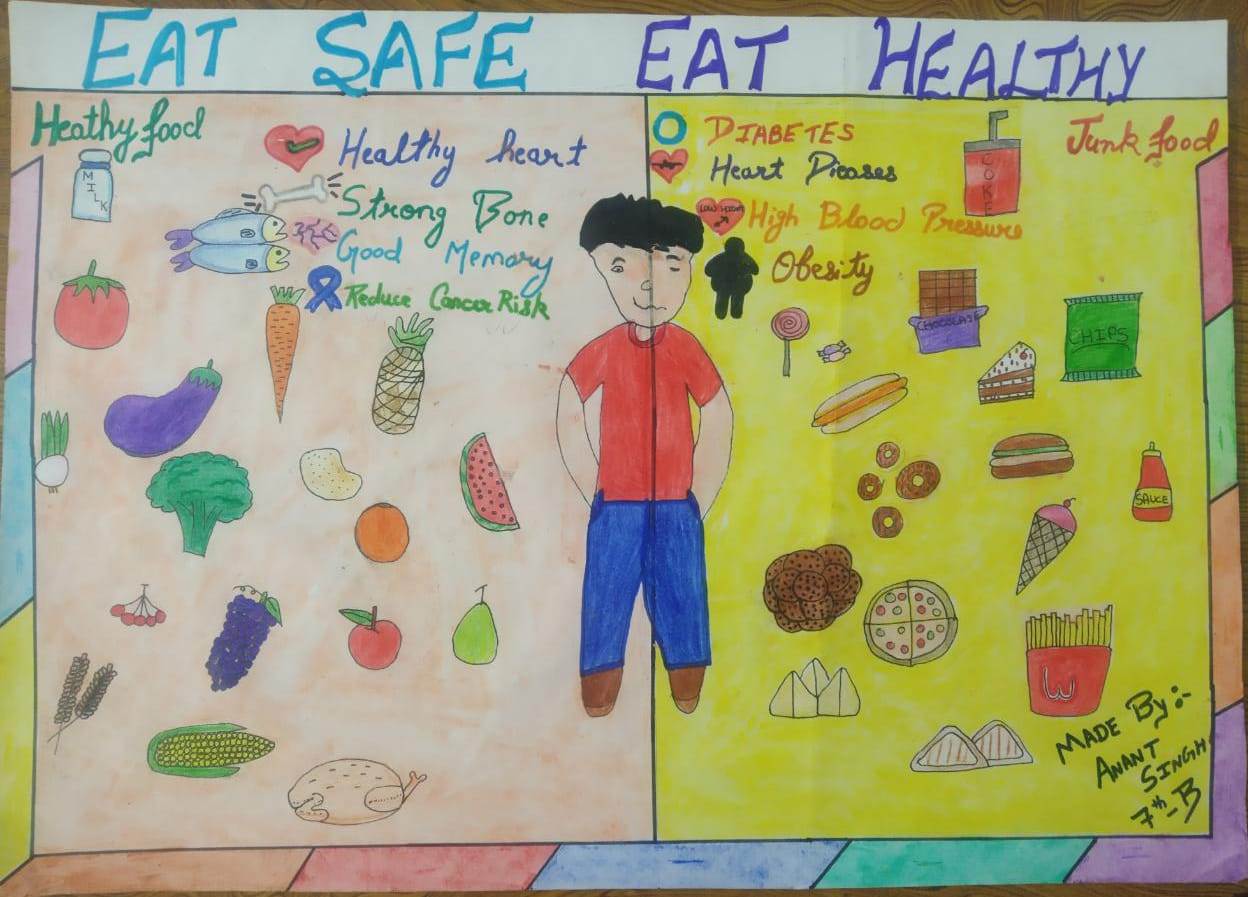 EAT SAFE EAT HEALTHY
Heathy food
MILK
Healthy heart
Strong Bone
Good Memory
Reduce Cancer Risk
DIABETES
Heart Dieases
High Blood Pressure
Obesity
Junk food
COKE
CHOCOLATE
CHIPS
SAUCE
MADE By :-
ANANT
SINGH
7th-B